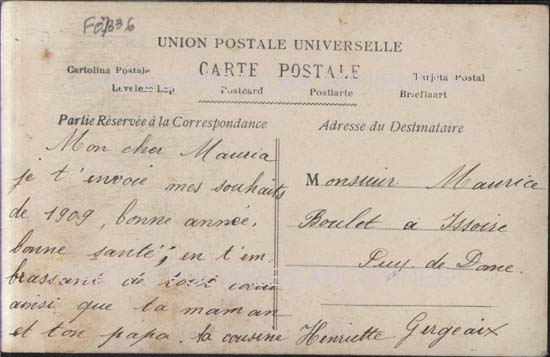 F07336
UNION POSTALE UNIVERSELLE
CARTE POSTALE
Cartolina Postale
Tarjeta Postal
Levelezo Lap
Postcard
Postkarte
Briefkaart
Partie Réservée à la Correspondance
Mon cher Mauria
je t'envoie mes souhaits
de 1909, bonne année,
bonne santé, en t'em-
brassant de tout cœur
ainsi que ta maman
et ton papa. ta cousine
Henriette Gergeaix
Adresse du Destinataire
Monsieur Maurice
Boulot à Issoire
Puy de Dome.